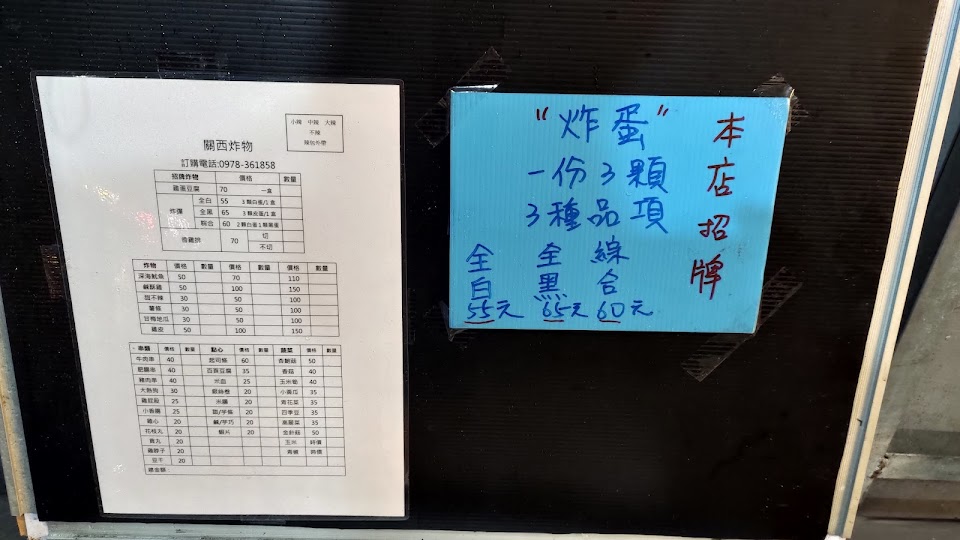 小辣 中辣 大辣
不辣
辣包外帶
關西炸物
訂購電話:0978-361858
招牌炸物 價格 數量
雞蛋豆腐 70 一盒
炸彈 全白 55 3顆白蛋/1盒
全黑 65 3顆皮蛋/1盒
綜合 60 2顆白蛋1顆黑蛋
雞排 70 切
不切
炸物 價格 數量 價格 數量 價格 數量
深海魷魚 50 70 110
鹹酥雞 50 100 150
甜不辣 30 50 100
薯條 30 50 100
甘梅地瓜 30 50 100
雞皮 50 100 150
串類 價格 數量 點心 價格 數量 蔬菜 價格 數量
牛肉串 40 起司條 60 杏鮑菇 50
肥腸串 40 百頁豆腐 35 香菇 40
雞肉串 40 米血 25 玉米筍 40
大熱狗 30 銀絲卷 20 小黃瓜 35
雞屁股 25 米腸 20 青花菜 35
小香腸 25 甜/芋條 20 四季豆 35
雞心 20 鹹/芋巧 20 高麗菜 35
花枝丸 20 蝦片 20 金針菇 50
貢丸 20 玉米 時價
雞脖子 20 青椒 時價
豆干 20
總金額:
"炸蛋"
一份3顆
3種品項
全白 55元
全黑 65元
綜合 60元
本店招牌